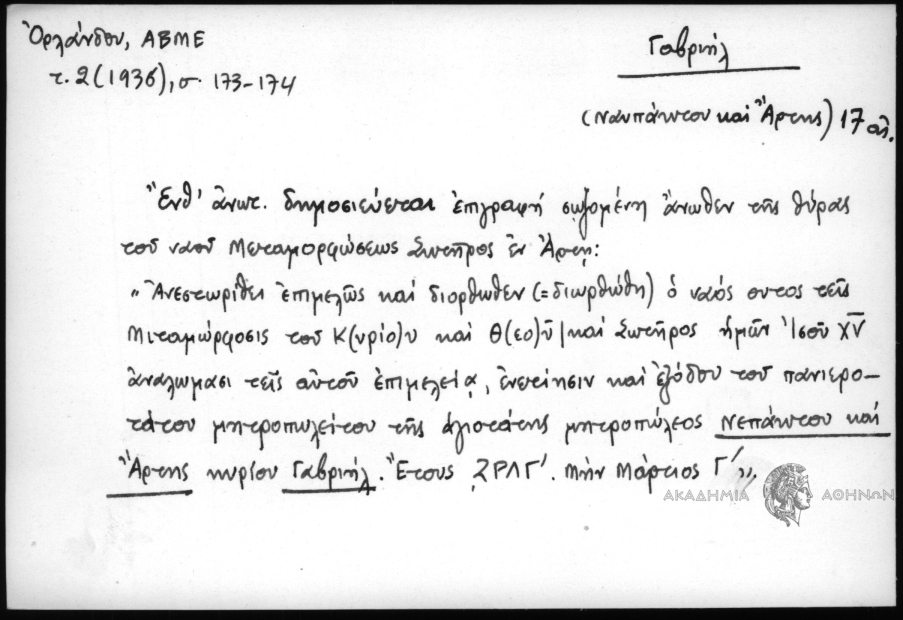 Ὀρλάνδου, ΑΒΜΕ
τ. 2 (1936), σ. 173-174
Γαβριήλ
(Ναυπάκτου καὶ Ἄρτης) 17 αἰ.
Ἔνθ' ἀνωτ. δημοσιεύεται ἐπιγραφή σῳζομένη ἄνωθεν τῆς θύρας
τοῦ ναοῦ Μεταμορφώσεως Σωτῆρος ἐν Ἄρτῃ:
„Ἀνεστωρίθει ἐπιμελῶς καὶ διορθωθεν (=διωρθώθη) ὁ ναός ουτος τεῖς
Μιταμώρφοσις τοῦ Κ(υρίο)υ καὶ Θ(εο)ῦ | καὶ Σωτῆρος ἡμῶν Ἰσοῦ ΧῩ
ἀναλωμασι τεῖς αὐτοῦ ἐπιμελείᾳ, ἐνετίησιν καὶ ἐξόδου τοῦ πανιερο-
τάτου μητροπωλείτου τῆς ἁγιοτάτης μητροπώλεος Νεπάκτου καὶ
Ἄρτης κυρίου Γαβριήλ. Ἔτους ΖΡΛΓ'. Μὴν Μάρτιος Γ'„
ΑΚΑΔΗΜΙΑ ΑΘΗΝΩΝ